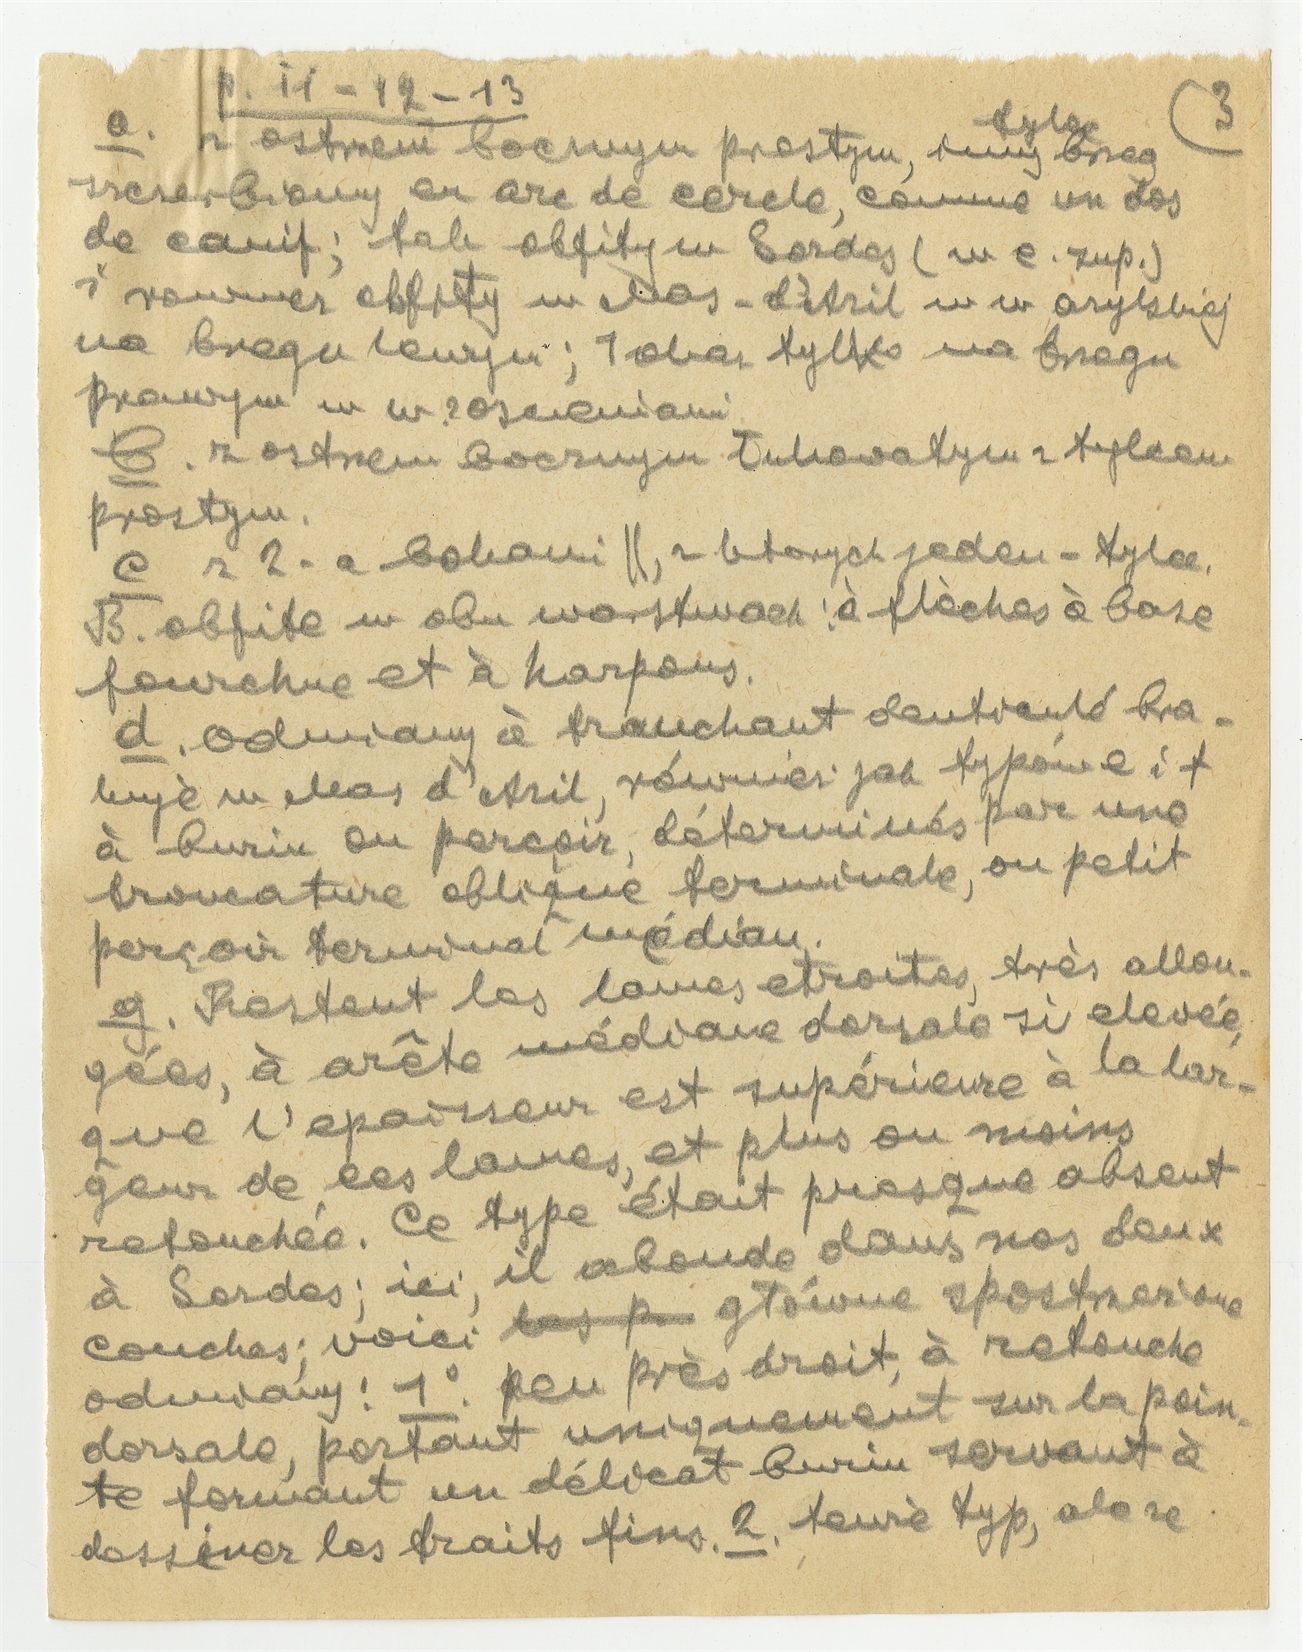 p. 11 - 12 - 13
(3
a. z ostrzem bocznym prostym, inny brzeg tylec
szczerbiony en arc de cercle, comme un dos
de canif; tak obfity w Sordes (w c. sup.)
i rownież obfity w Mas - d'Azil w w azylskiej
na brzegu lewym; i okaz tylko na brzegu
prawym w w
b. z ostrzem bocznym łukowatym z tylcem
prostym.
c z 2 - a bokami ||, z ktorych jeden - tylec.
B. obfite w obu warstwach: à flèches à base
fourchue et à harpons.
d. odmiany à tranchant dentículé bra-
kuje w Mas d'Azil, również jak typowe i t
à burin ou perçoir, déterminés par une
troncature oblique terminale, ou petit
perçoir terminal médian.
g. Restent les lames etroites, très allon-
gées, à arête médiane dorsale si elevée,
que l'epaisseur est supérieure à la lar-
geur de ces lames, et plus ou moins
retouchée. Ce type était presque absent
à Sordes; ici, il abonde dans nos deux
couches; voici les p. główne spostrzeżone
odmiany: 1°. peu près droit, à retouche
dorsale, portant uniquement sur la poin-
te formant un délicat burin servant à
dessiner les traits fins. 2. tenże typ, ale ze